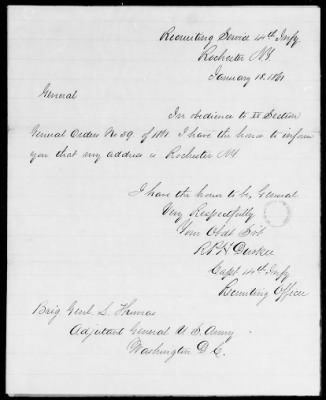 Recruiting Service 14th Infy
Rochester N.Y.
January 18. 1861
General
In obedience to II Section
General Orders No 39. of 1861. I have the honor to inform
you that my address is Rochester N.Y.
I have the honor to be, General
Very Respectfully
Your Obdt Svt
Capt 14th Infy
Recruiting Officer
Brig Genl. L. Thomas
Adjutant General U.S. Army
Washington D.C.